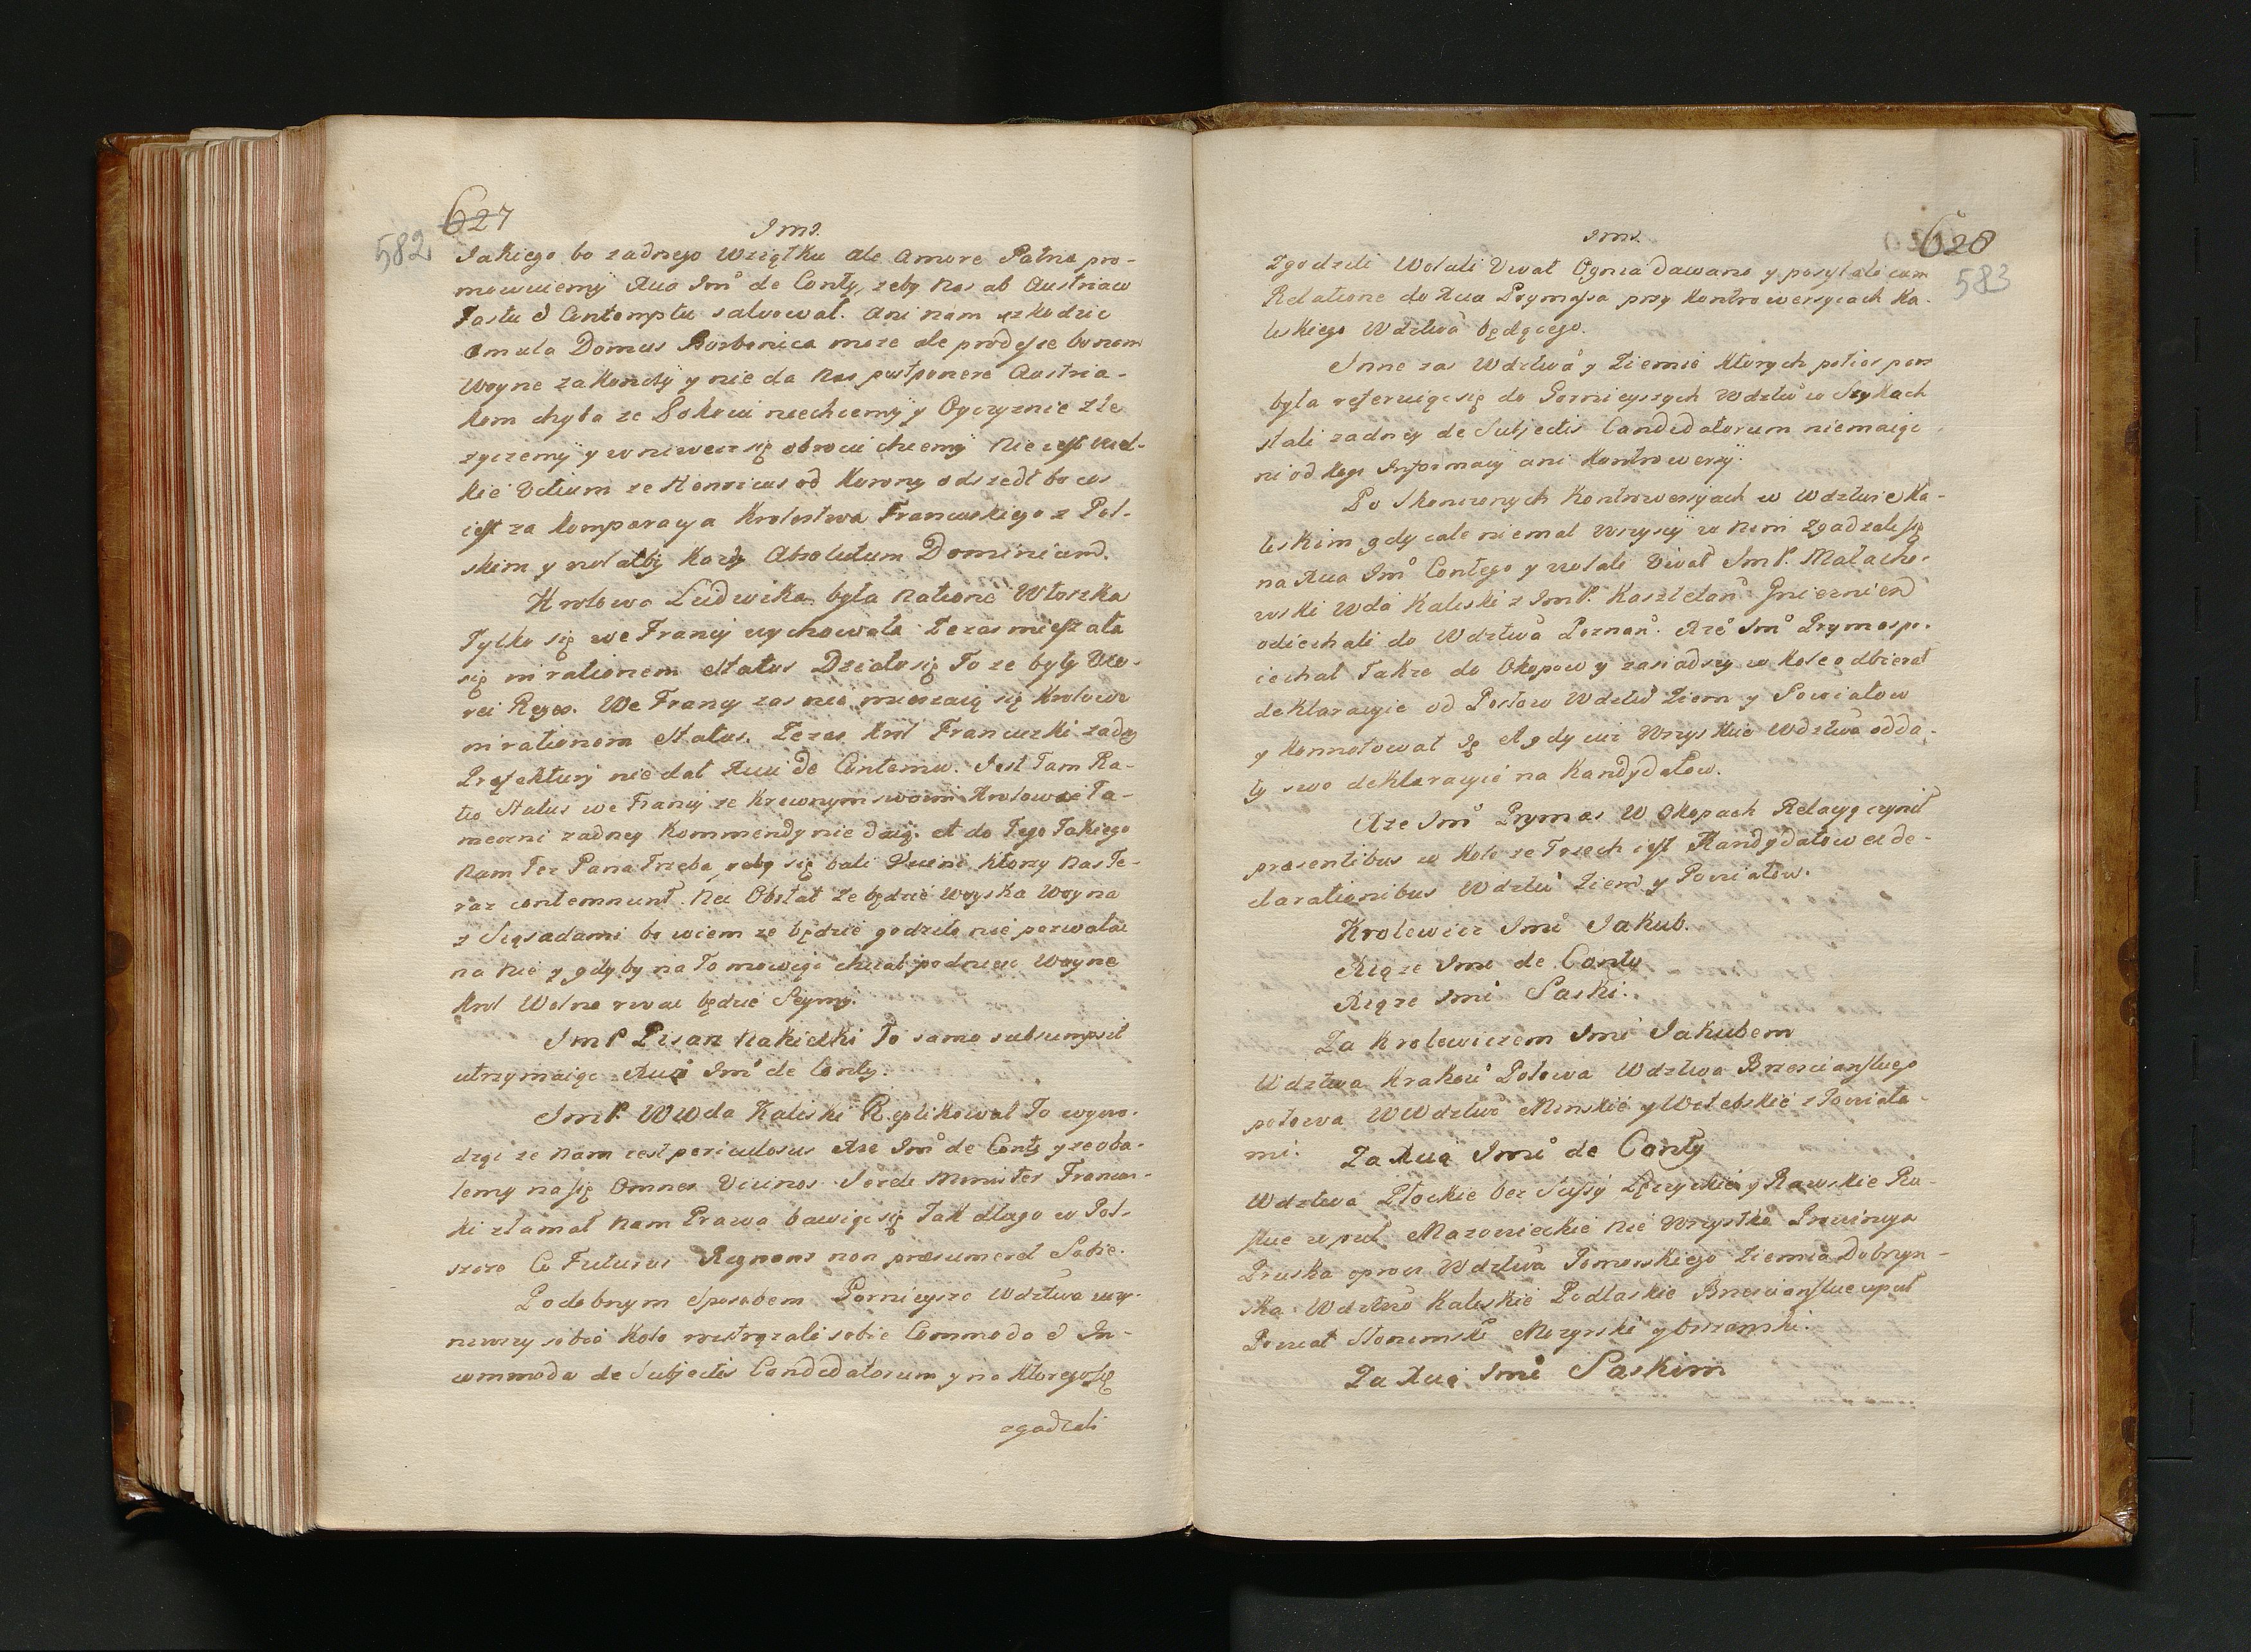 627
582
Jms.
Jakiego bo zadnego wziątku ale amore Patriæ pro-
mowuiemy Xcia Jm̃ de Conty, zeby nas ab Austriaco
Fastu & Contemptu salwował. Ani nam szkodzic
æmula Domus Borbonica moze ale prodesse bo nam
Woyne zakonczy y nie da nas postponere Austria-
kom chyba ze Pokoiu niechcemy y Oyczyznie Zle
zyczemy y wniwecz się obrocic chcemy Nie iest wiel-
kie Vitium ze Henricus od Korony odszedł bo coz
iest za komparacya Krolestwa Francuskiego z Pol-
skim y wolałby kozdy Absolutum Dominium.
Krolowa Ludwika była natione Włoszka
Tylko się we Francyi wychowała Ze zas mieszała
się in rationem Status Działo się To ze były Uxo-
rei Reges. We Francyi zas nie mieszaią się Krolowe
in rationem Status. Ze zas Krol Francuzki zadney
Prefektury nie dał Xciu de Contemu. Jest Tam Ra-
tio Status we Francyi ze Krewnym swoim Krolowie Ta-
meczni zadney Kommendy nie daią. A do Tego Takiego
nam Tez Pana Trzeba, zeby się bali Vicini ktorzy nas Te-
raz contemnunt. Nec Obstat Ze będzie woyska Woyna
z Sąsadami bo wiem ze będzie godziło nie pozwalac
na nie y gdyby na To mowiąc chciał podniesc Woynę
Krol Wolno rwac będzie Seymy.
JmP Pisarz Nakielski To samo subsumpsit
utrzymaiąc Xcia Jm̃ de Conty.
JmP. WWda Kaliski Replikował To wywo-
dząc ze nam iest periculosus Xze Jm̃ de Conty y ze oba-
lemy na się Omnes Vicinos. Jezeli Minister Francus-
ki złamał nam Prawa bawiąc się Tak długo w Pol-
szcze Co Futurus Regnans non præsumeret Sobie.
Podobnym Sposobem Pomnieysze Wdztwa uczy-
niwszy sobie Koło roztrząsali sobie Commoda & In-
commoda de Subjectis Candidatorum y na ktorego się
zgodzili
Jms.
628
583
Zgodzili Wołali Vivat Ognia dawano y posyłali cum
Relatione do Xcia Prymasa przy Kontrowersyiach Ka-
liskiego Wdztwa będącego.
Inne zas Wdztwa y Ziemie ktorych potior pars
była referuiąc się do Pomnieyszych Wdztw w Szykach
stali zadney de Subjectis Candidatorum niemaiąc
ni od kogo Informacyi ani Kontrowersyi.
Po Skonczonych Kontrowersyach w Wdztwie Ka-
liskim gdy cale niemal wszyscy w nim Zgadzali się
na Xcia Jm̃ Contego y wołali Vivat JmP. Małacho-
wski Wda Kaliski z JmP. Kasztelan̄ Gniezniens
odiechali do Wdztwa Poznan̄. Xze Jm̃ Prymas po-
iechał Takze do Okopow y zasiadszy w Kole odbierał
deklaracyie od Posłow Wdztw Ziem y Powiatow
y konnotował ię A gdy iuz Wszyskie Wdztwa odda-
ły swe deklaracyie na Kandydatow.
Xze Jm̃ Prymas w Okopach Relacyą czynił
præsentibus w Kole ze Trzech iest Kandydatow ex de-
clarationibus Wdztw Ziem y Powiatow.
Krolewicz Jm̃ Jakub.
Xiąze Jm̃ de Conty
Xiąze Jm̃ Saski.
Za Krolewiczem Jm̃ Jakubem
Wdztwa Krakow̄ Połowa Wdztwa Brzescianskiego
połowa WWdztwa Minskie y Witebskie z Powiata-
mi.
Za Xcią Jm̃ de Conty
Wdztwa Płockie bez Łęczyckie y Rawskie Ru-
skie wpuł Mazowieckie nie wszystko Prowincya
Pruska oprocz Wdztwa Pomorskiego Ziemia Dobrzyn-
ska Wdztwo Kaliskie Podlaskie Brzescianskie wpuł
Powiat Słonimski Mozyrski y
Za Xcią Jm̃ Saskim